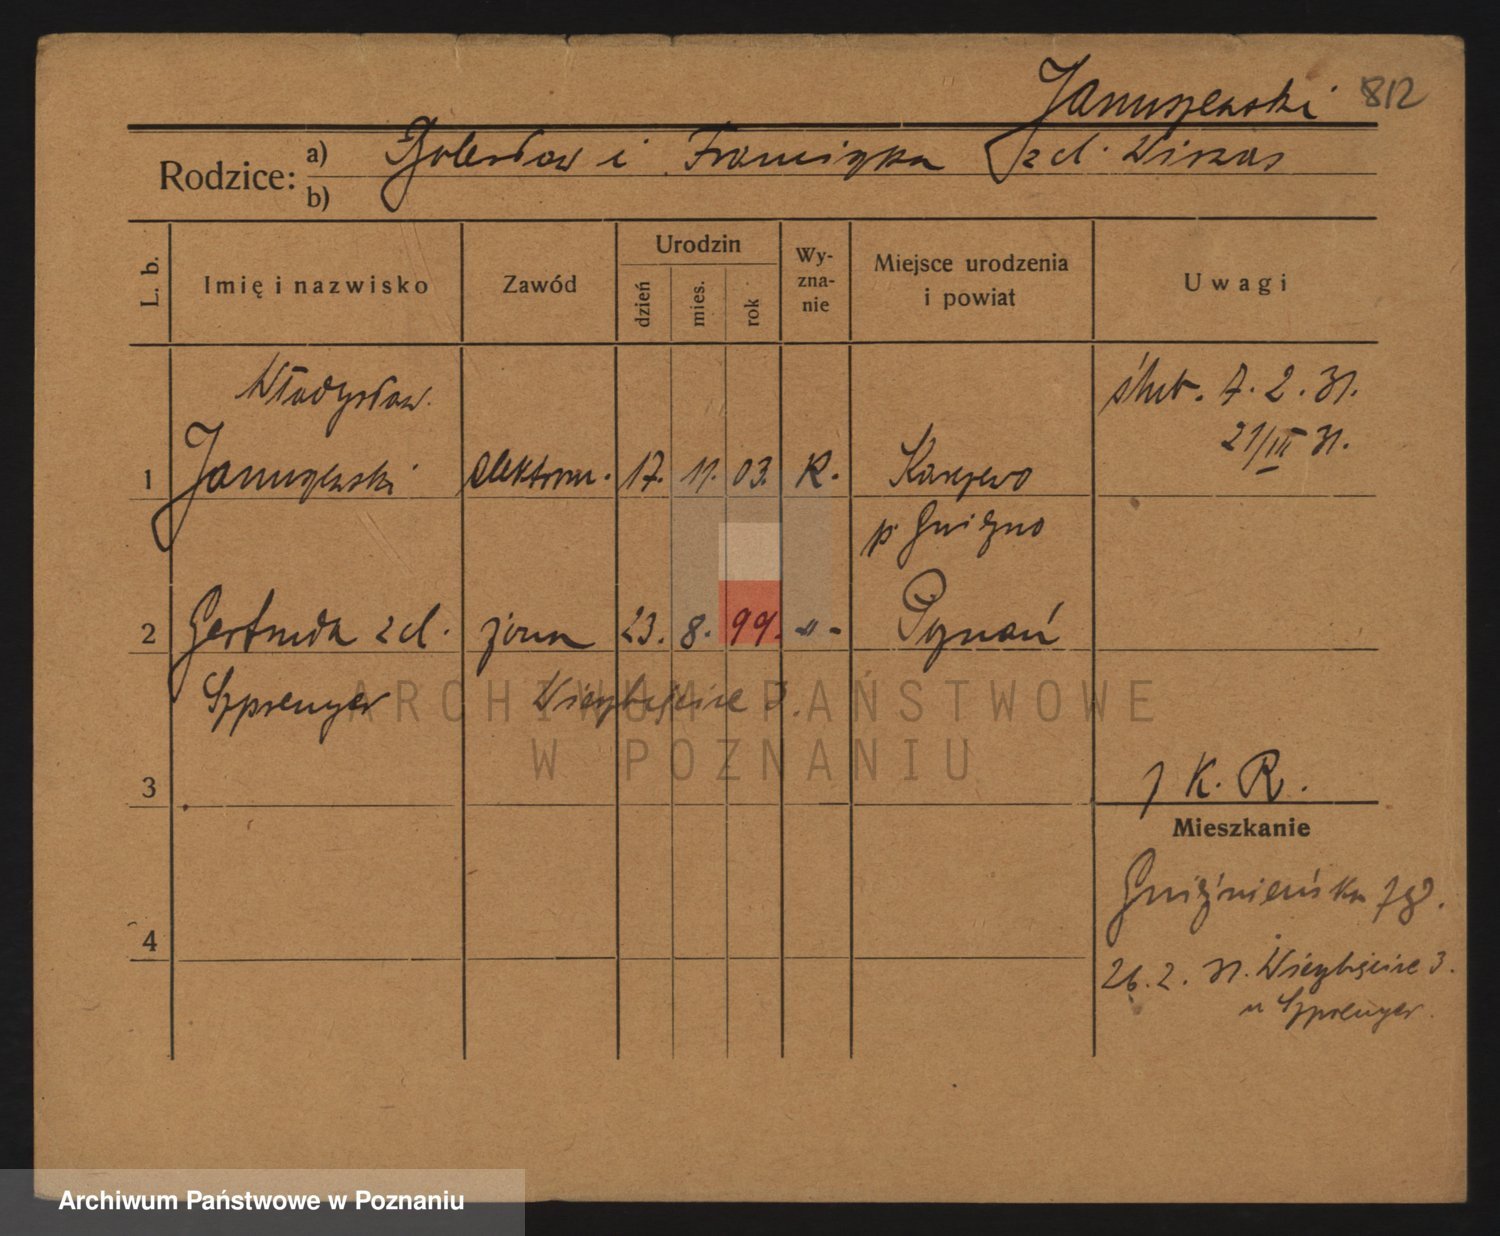 Januszewski 812
Rodzice: a) Bolesław i Franciszka z d. Wirzas
b)
L. b. Imię i nazwisko Zawód Urodzin dzień mies. rok Wy-zna-nie Miejsce urodzenia i powiat Uwagi
Władysław
ślub. 7. 2. 31.
21/III 31.
1 Januszewski elektrom. 17. 11. 03. R.
p. Gniezno
2 Gertruda z d. żona 23. 8. 99. -"- Poznań
Szprenger Wierzbięcice 3.
ARCHIWUM PAŃSTWOWE
W POZNANIU
3
K. R.
Mieszkanie
Gnieźnieńska
4
26. 2. 31. Wierzbięcice 3.
u Szprenger.
Archiwum Państwowe w Poznaniu